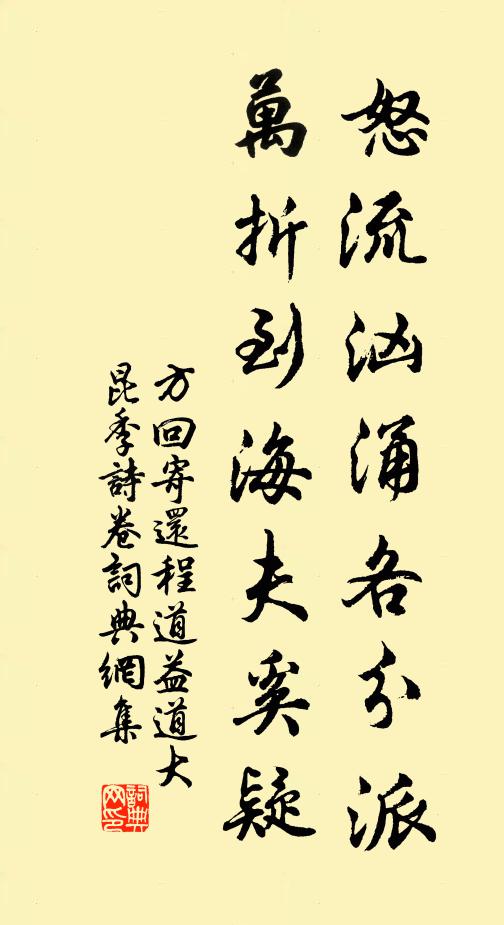 怒流汹涌各分派
萬折到海夫奚疑
方回寄還程道益道大
昆季詩卷詞典網集
詞典
网印